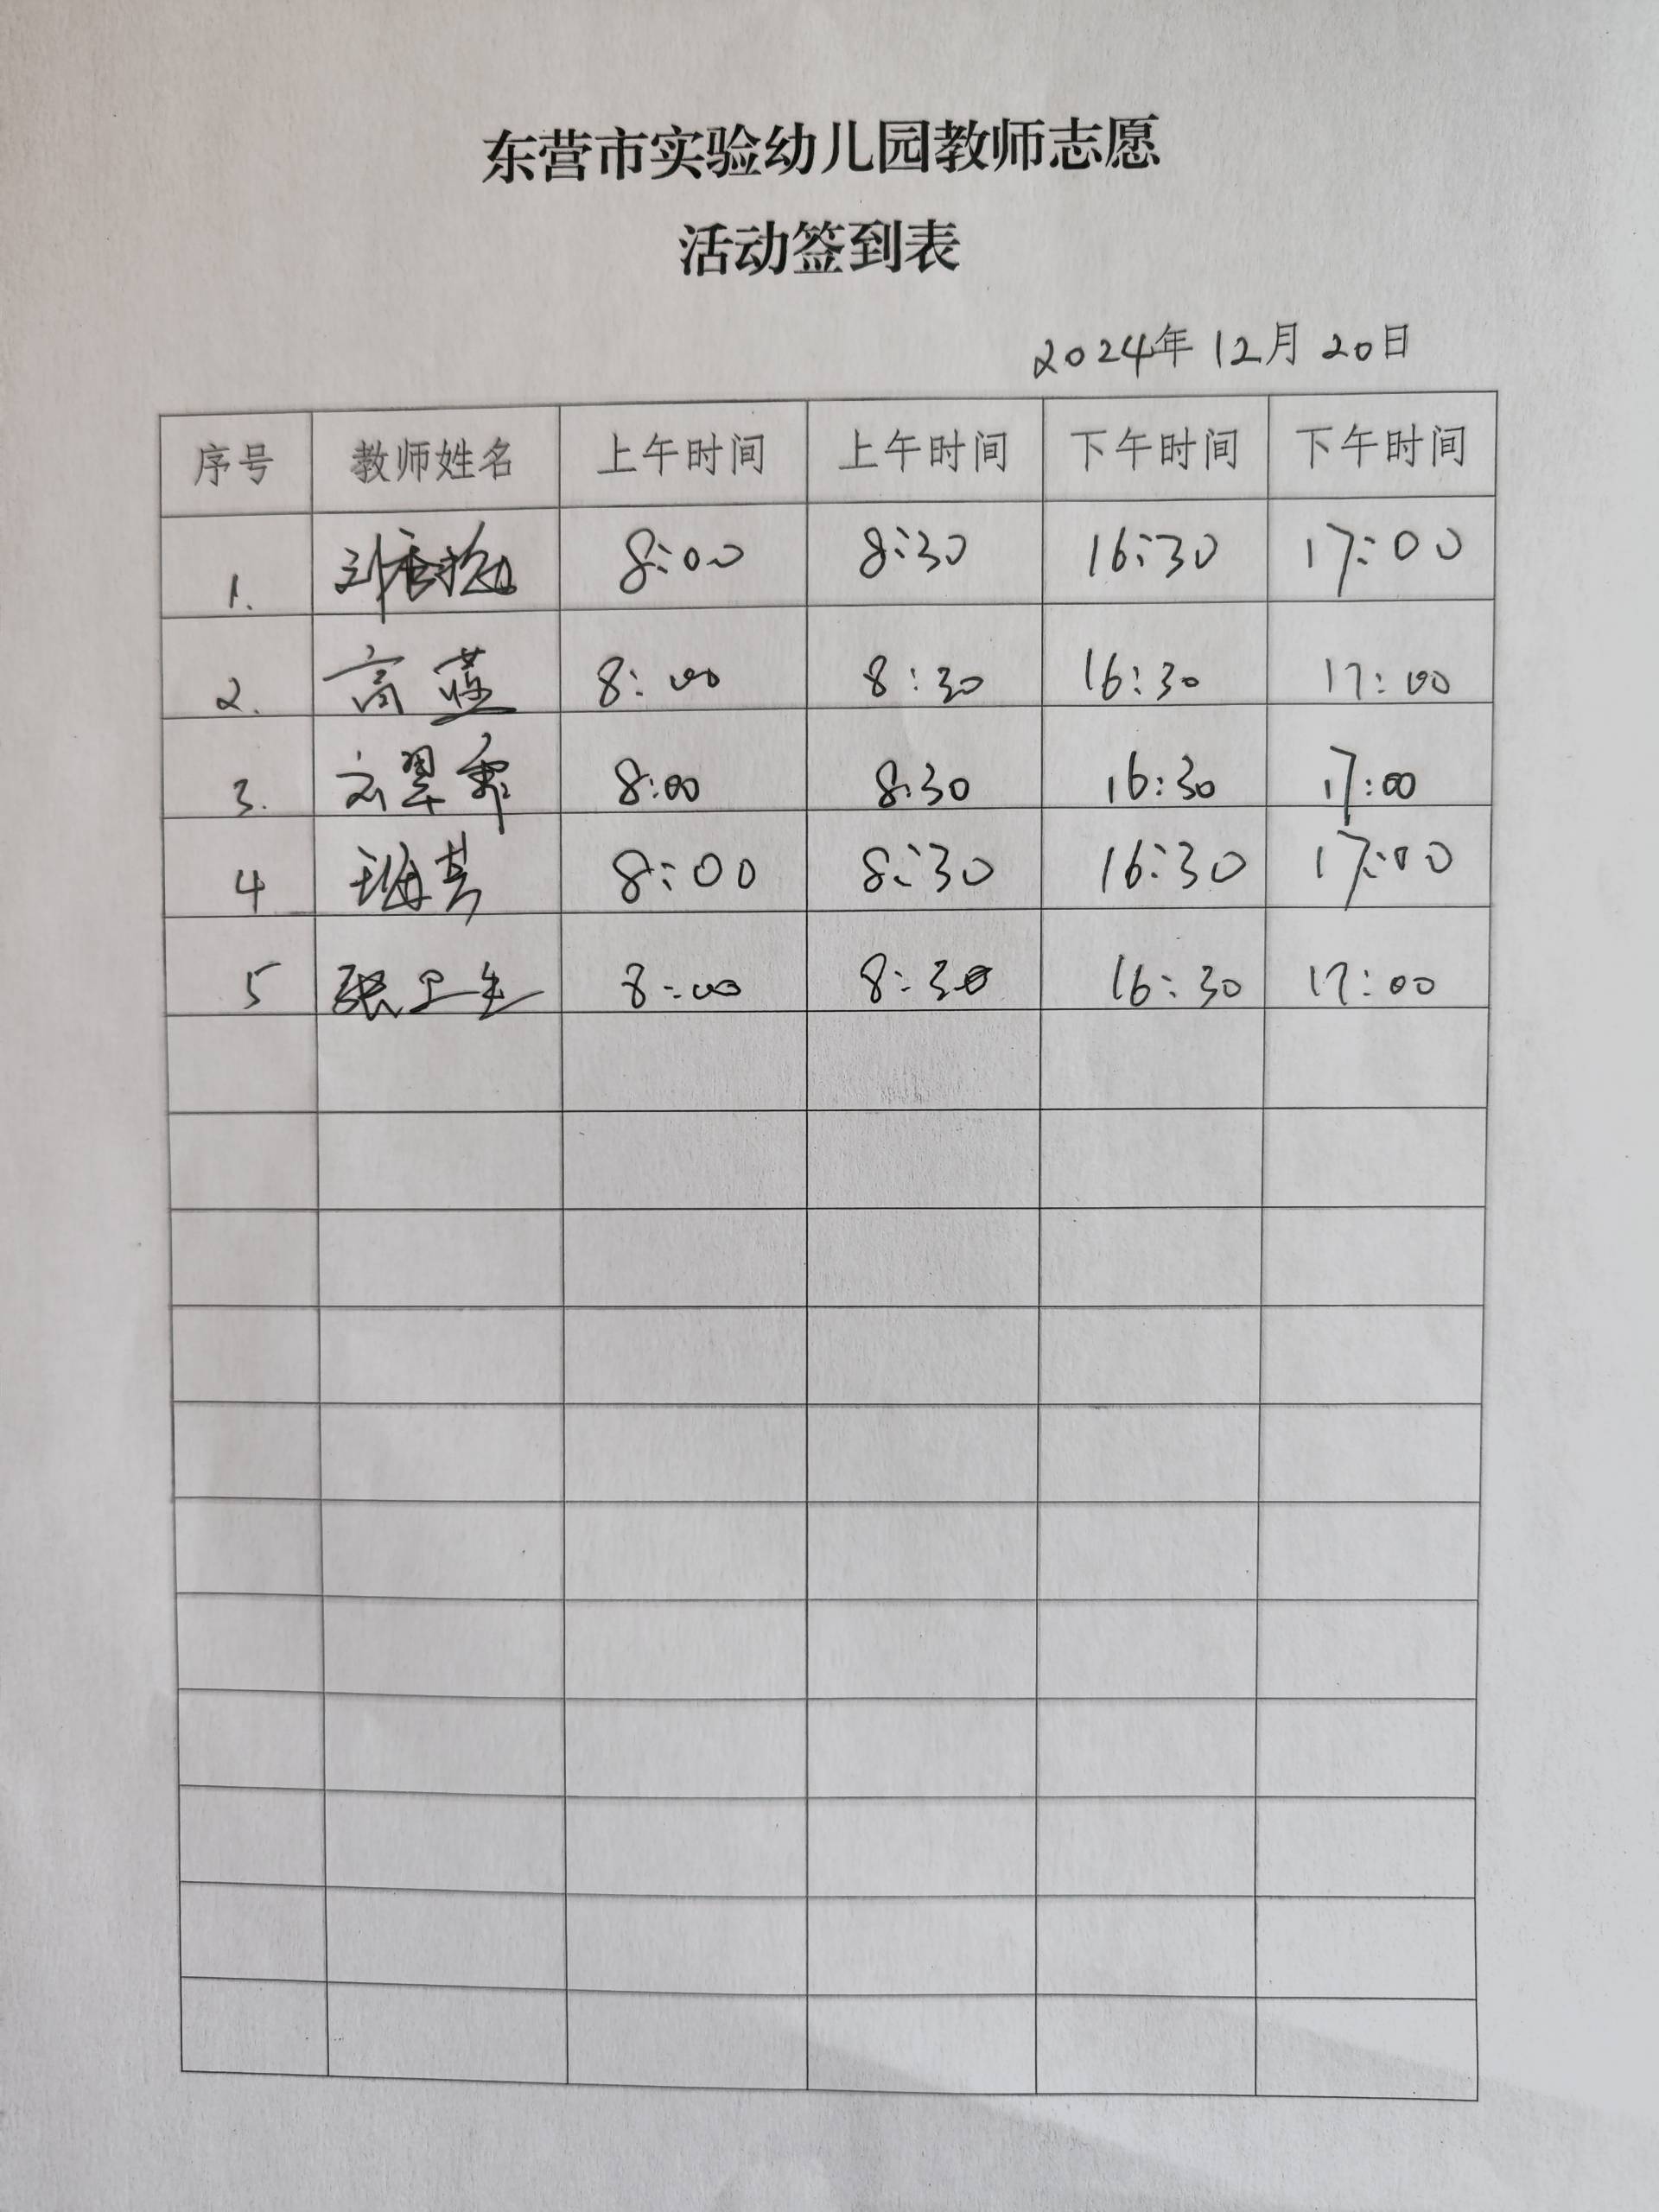 东营市实验幼儿园教师志愿
活动签到表
2024年12月20日
序号 教师姓名 上午时间 上午时间 下午时间 下午时间
1. 8:00 8:30 16:30 17:00
2. 高莲 8:00 8:30 16:30 17:00
3. 8:00 8:30 16:30 17:00
4 8:00 8:30 16:30 17:00
5 张卫生 8:00 8:30 16:30 17:00